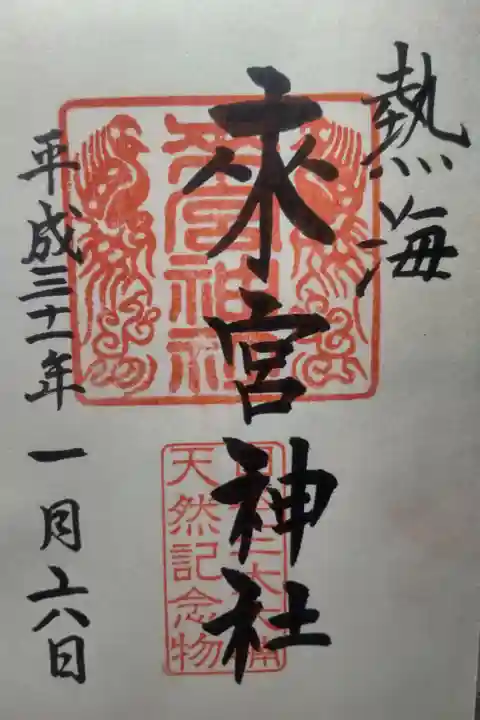 熱海
來宮神社
來宮神社
天然記念物
平成三十一年一月二六日